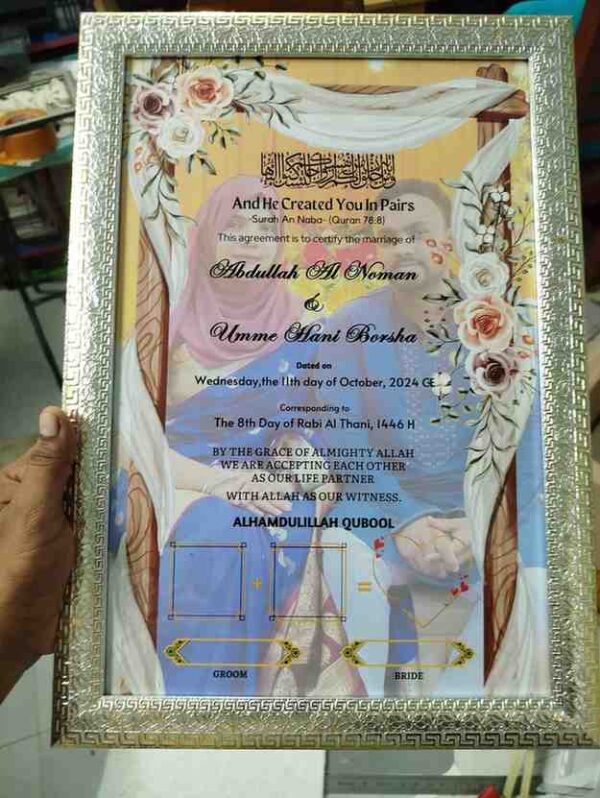 And He Created You In Pairs
-Surah An Naba- (Quran 78:8)
This agreement is to certify the marriage of
Abdullah Al Noman
&
Umme Hani Borsha
Dated on
Wednesday,the 11th day of October, 2024 GE
Corresponding to
The 8th Day of Rabi Al Thani, 1446 H
BY THE GRACE OF ALMIGHTY ALLAH
WE ARE ACCEPTING EACH OTHER
AS OUR LIFE PARTNER
WITH ALLAH AS OUR WITNESS.
ALHAMDULILLAH QUBOOL
+ =
GROOM BRIDE